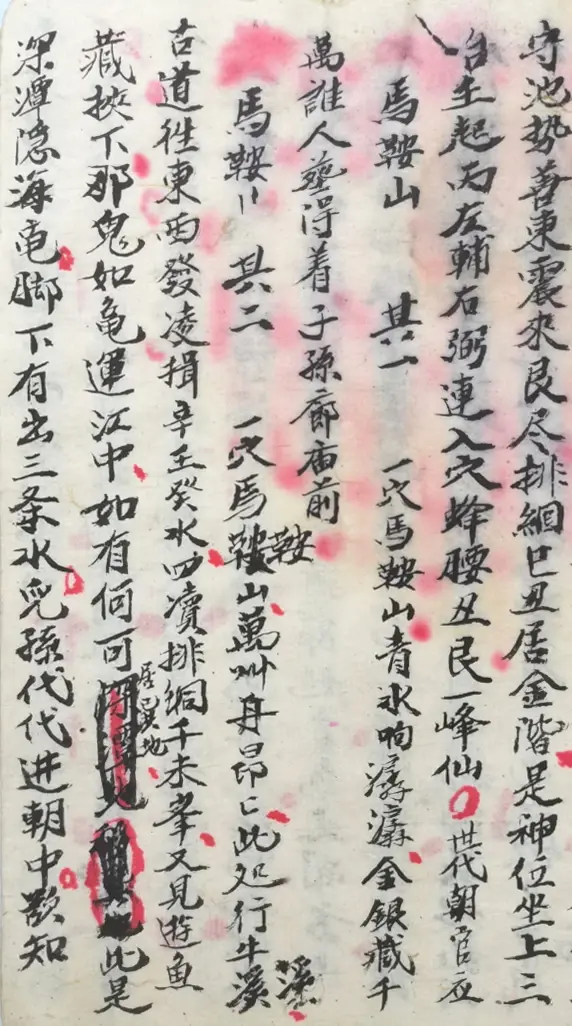 守池势善東震來艮尽排細巳丑居金階是神位坐上三
台生起丙左輔右弼連入穴蜂腰丑艮一峰仙 世代朝官应
馬鞍山 其一 一穴馬鞍山青水响潺潺金銀藏千
萬誰人塟得着子孫廊庙前
馬鞍〃 其二 一穴馬鞍山萬 昂〻此处行牛溪
古道往東西發凌揖辛壬癸水四瀆排細千未峯又見遊魚
藏挾下那鬼如龟運江中如有何可 居 地 此是
深潭隐海龟脚下有出三条水児孫代代进朝中欲知